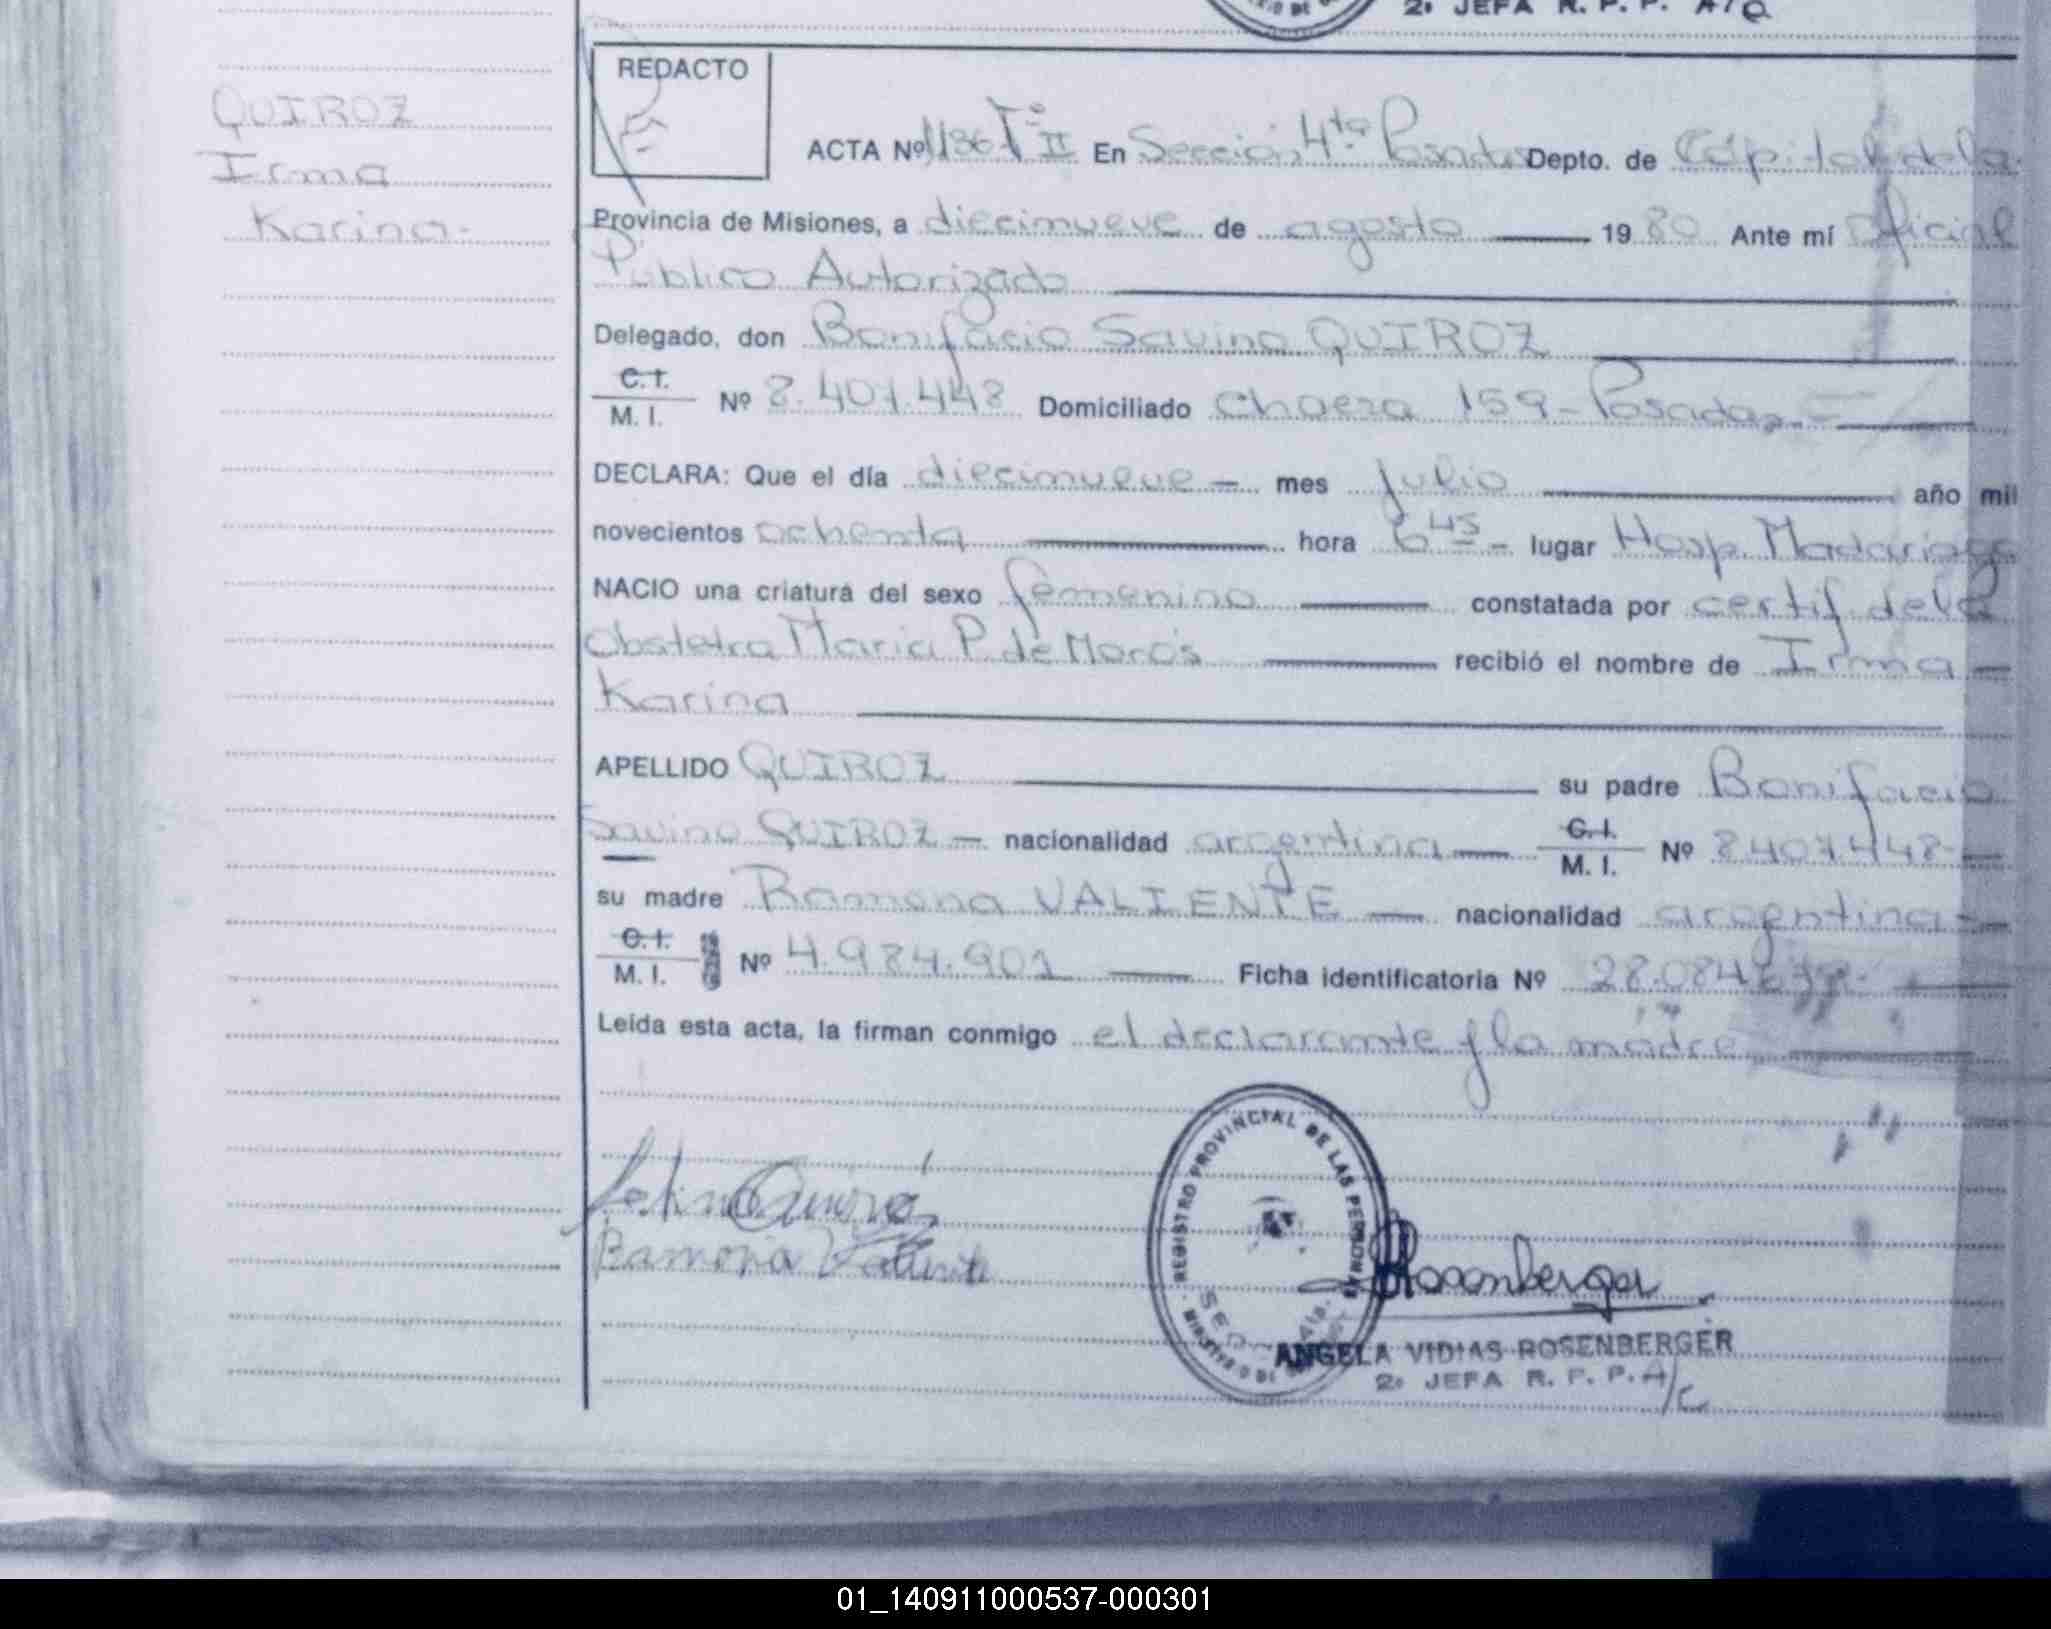 2º JEFA R. P. P. A/C
REDACTO
QUIROZ
Irma
Karina.-
ACTA Nº 1186 Tº II En Sección 4ta Posadas Depto. de Cápital de la
Provincia de Misiones, a diecinueve de agosto 19 80 Ante mí Oficial
Público Autorizado
Delegado, don Bonifacio Savino QUIROZ
C. I.
M. I. Nº 8.407.448 Domiciliado Chacra 159 - Posadas.-
DECLARA: Que el día diecinueve - mes julio año mil
novecientos ochenta hora 6 45 - lugar Hosp. Madariaga
NACIO una criatura del sexo femenino constatada por certif. de la
Obstetra Maria P. de Morós recibió el nombre de Irma
Karina
APELLIDO QUIROZ su padre Bonifacio
Savino QUIROZ - nacionalidad argentina C. I.
M. I. Nº 8.407.448-
su madre Ramona VALIENTE nacionalidad argentina-
C. I.
M. I. Nº 4.984.901 Ficha identificatoria Nº 28.084
Leída esta acta, la firman conmigo el declarante y la madre
Ramona Valiente
REGISTRO PROVINCIAL DE LAS PERSONAS
Rosenberger
ANGELA VIDIAS ROSENBERGER
2º JEFA R. P. P. A/C
01_140911000537-000301